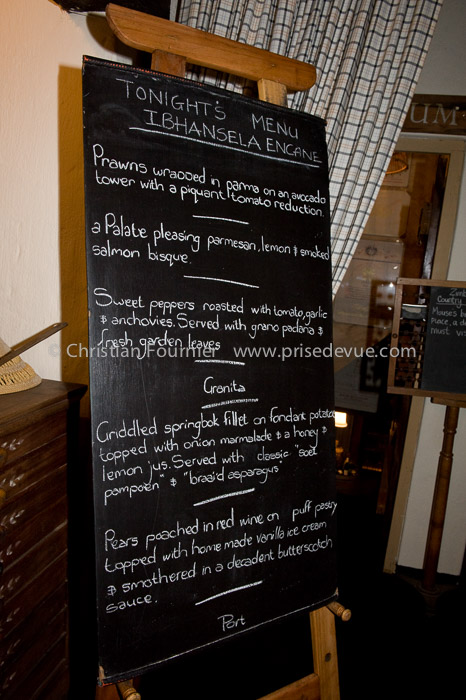 TONIGHT'S MENU
IBHANSELA ENCANE
Prawns wrapped in parma on an avocado
tower with a piquant tomato reduction.
a Palate pleasing parmesan, lemon & smoked
salmon bisque.
Sweet peppers roasted with tomato, garlic
& anchovies. Served with grano padana &
fresh garden leaves
Granita
Griddled springbok fillet on fondant potatoe
topped with onion marmalade & a honey &
lemon jus. Served with classic "soet
pampoen" & "braaid asparagus"
Pears poached in red wine on puff pastry
topped with home made vanilla ice cream
& smothered in a decadent butterscotch
sauce.
Port
UM
Country
place, a d
must vis
© Christian Fournier www.prisedevue.com